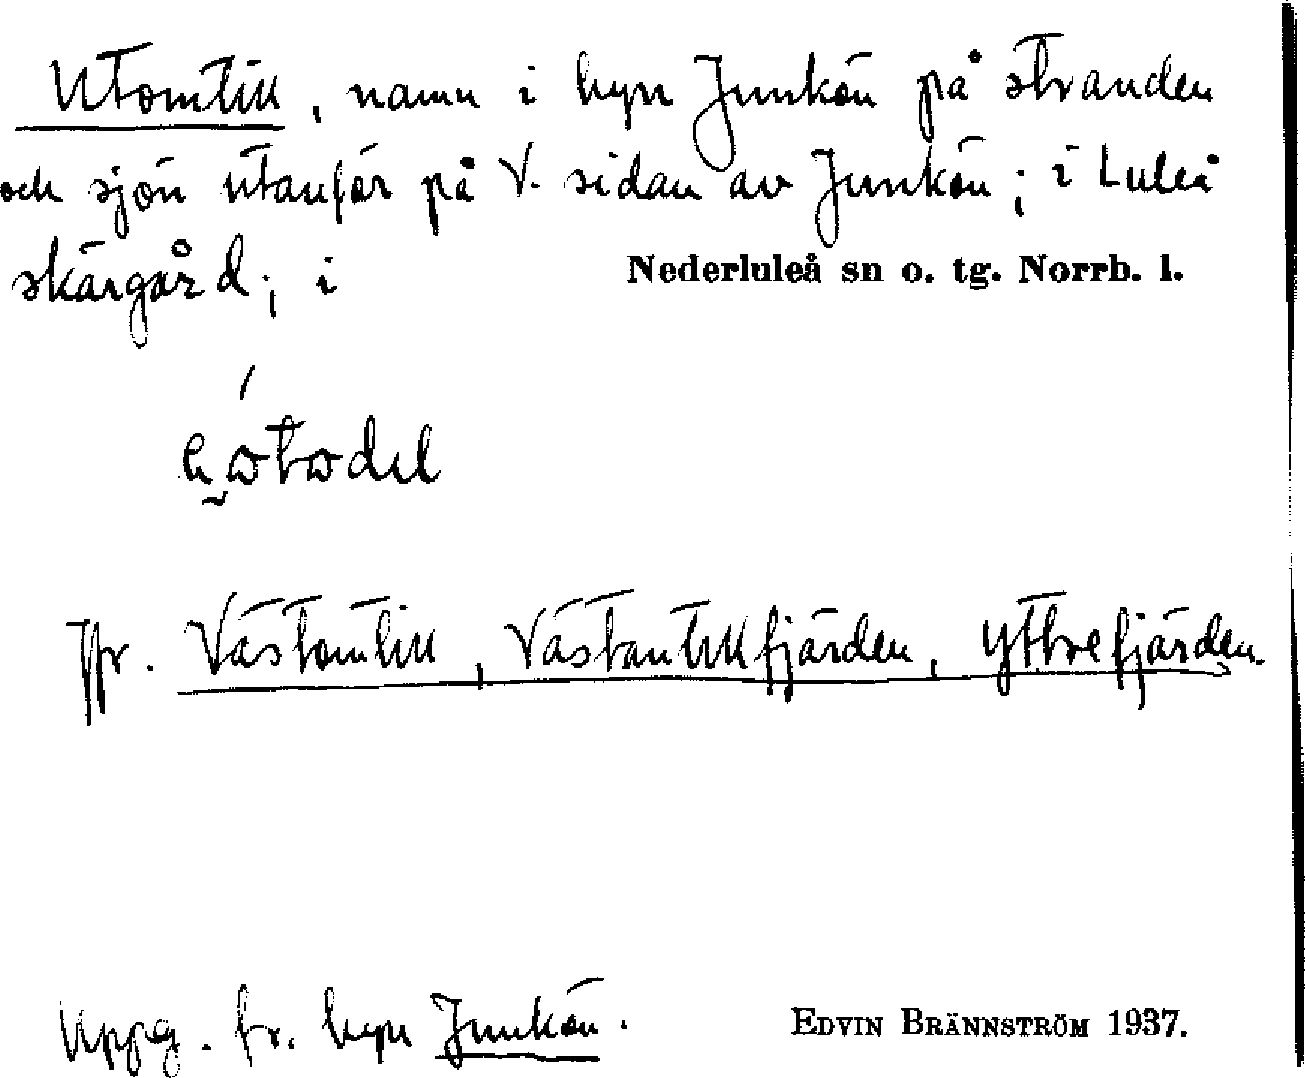 Utomtill, namn i byn Junkön på stranden
och sjön utanför på V. sidan av Junkön; i Luleå
skärgård; i Nederluleå sn o. tg. Norrb. l.
Jfr. Västomtill, Västantillfjärden, Yttrefjärden.
Uppg. fr. byn Junkön. EDVIN BRÄNNSTRÖM 1937.